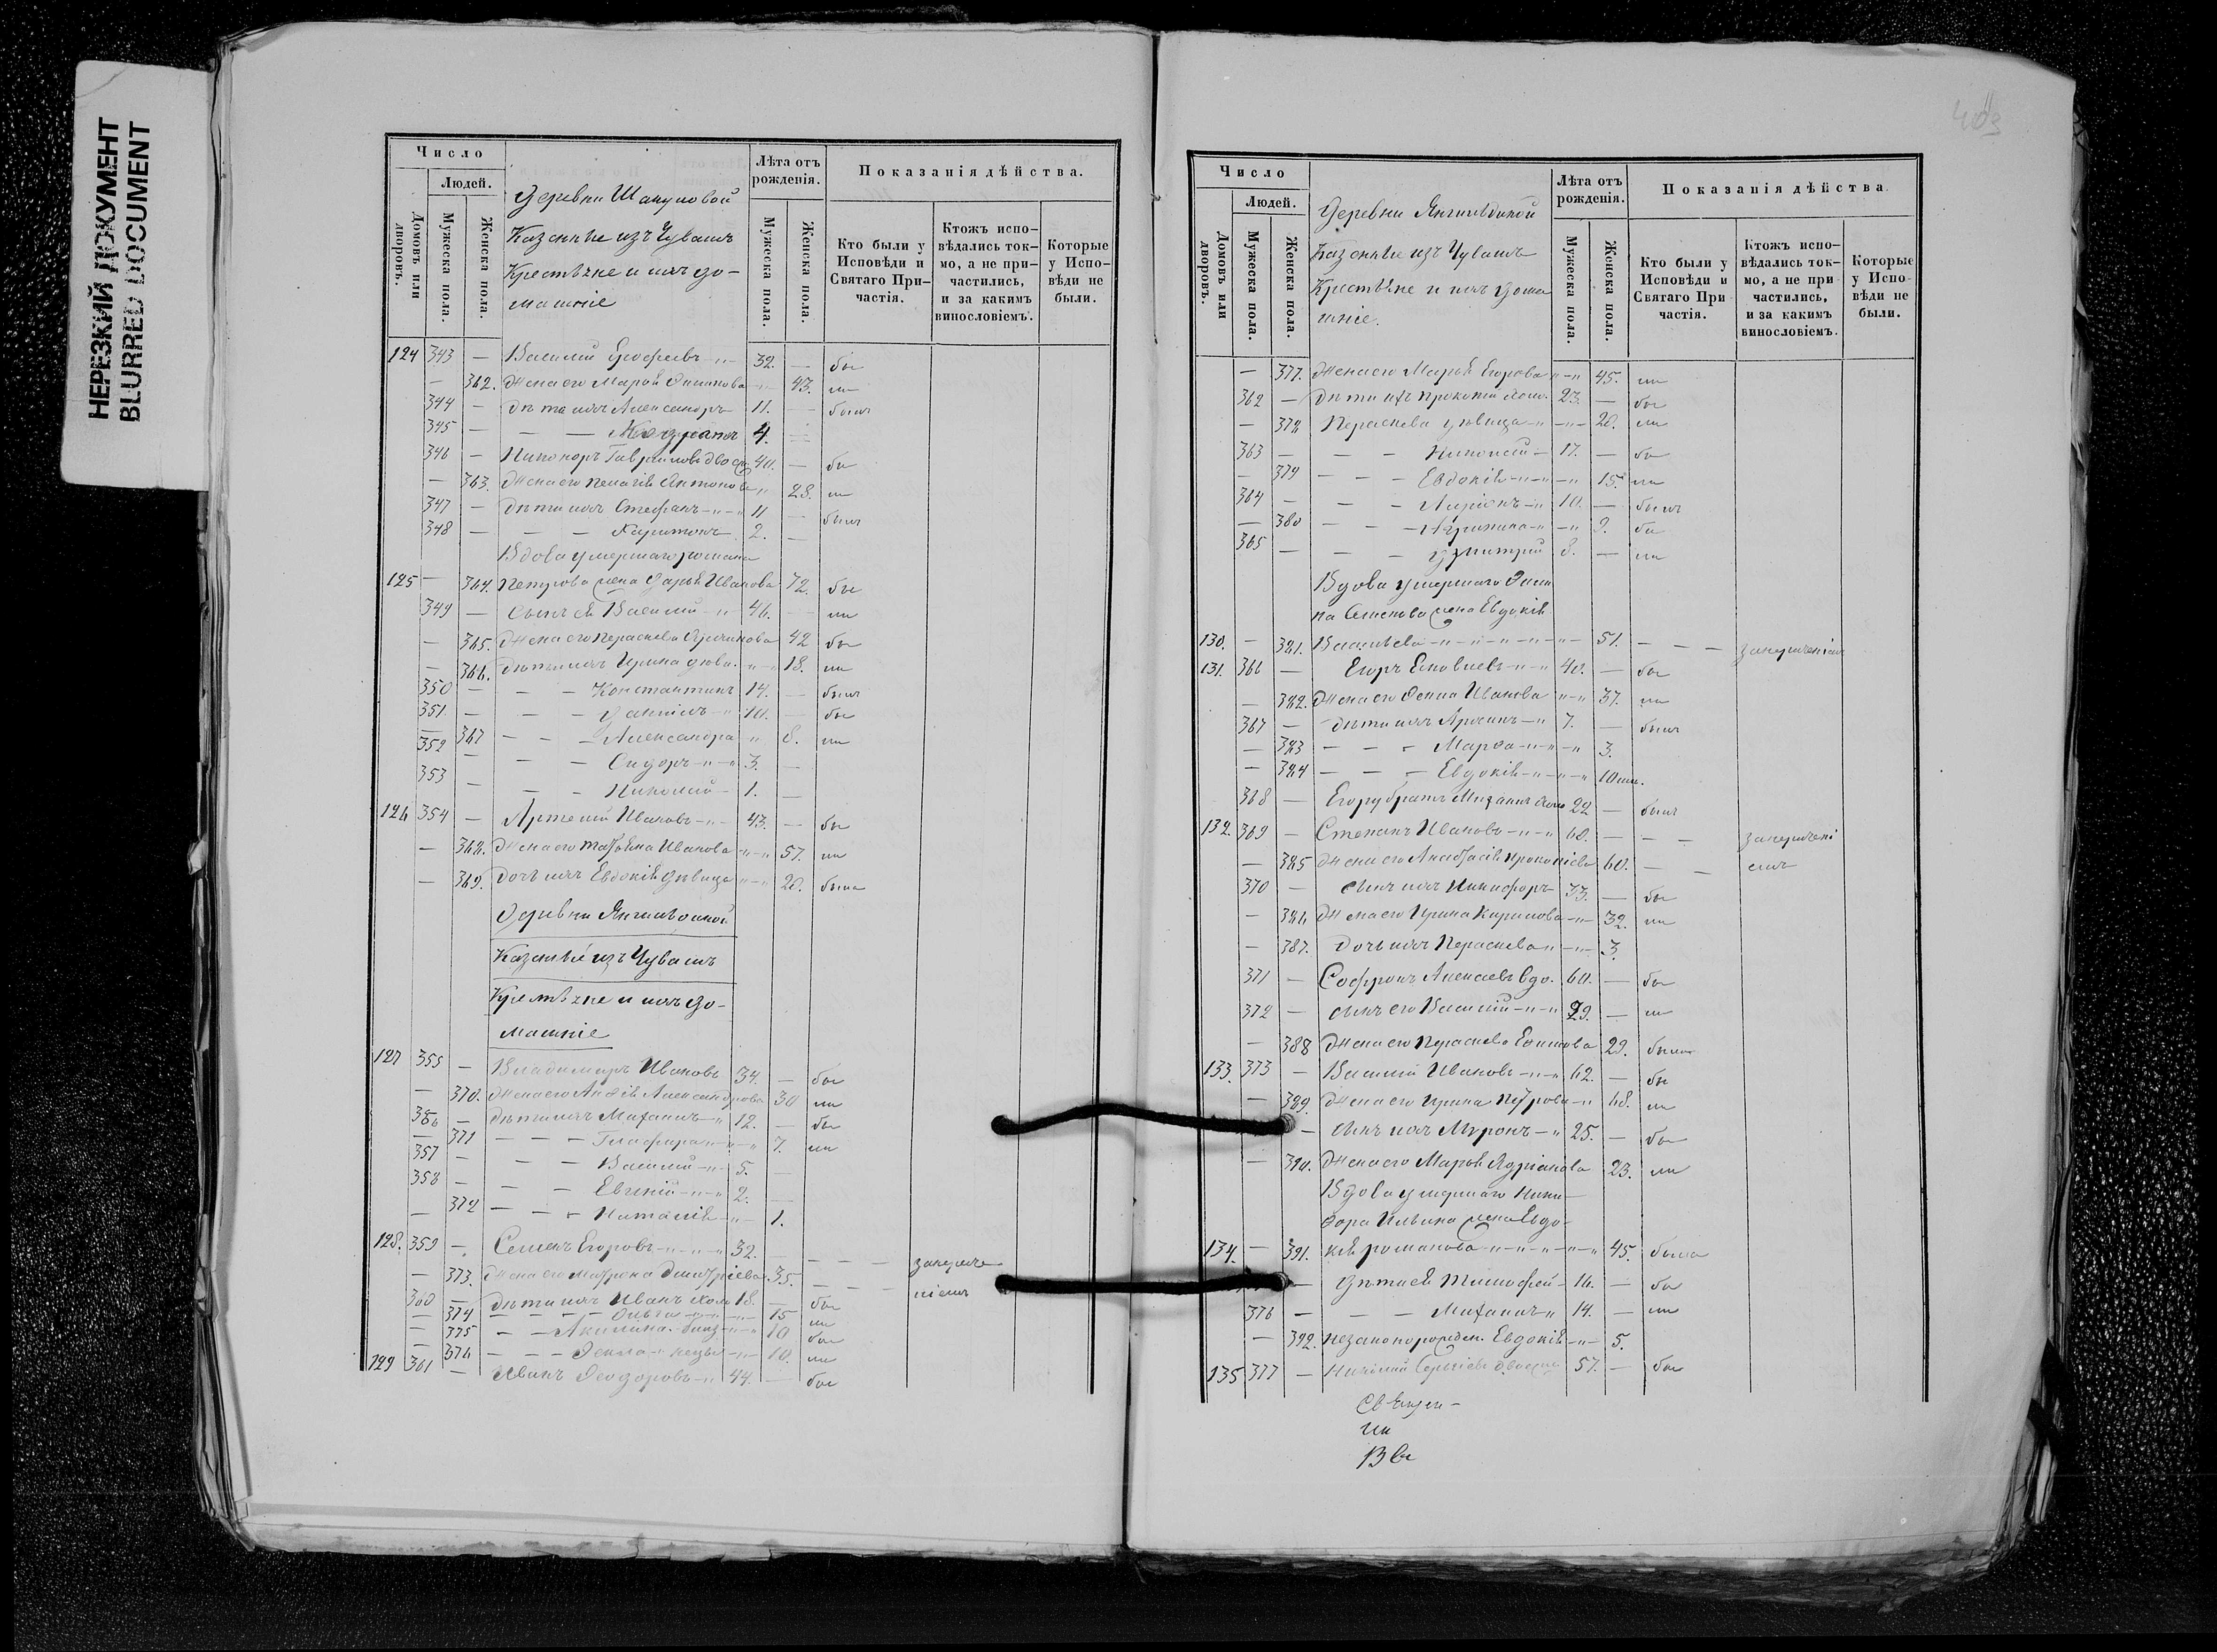 НЕРЕЗКИЙ ДОКУМЕНТ
BLURRED DOCUMENT
Число
Людей.
Домовъ или дворовъ.
Мужеска пола.
Женска пола.
Деревни Шакуловой
Казенные изъ Чувашъ
Крестьяне и ихъ до-
машніе
Лѣта отъ рожденія.
Мужеска пола.
Женска пола.
Показанія дѣйства.
Кто были у Исповѣди и Святаго При-частія.
Ктожъ испо-вѣдались ток-мо, а не при-частились, и за какимъ винословіемъ.
Которые у Испо-вѣди не были.
124 343 — Василий Ерофеевъ 32. — бы
— 362. Жена его Марья 43. ли
344 — дѣти ихъ Александръ 11. — былъ
345 — 4.
346 — Никоноръ Гавриловъ 40. — бы
— 363. Жена его Пелагія Антонова 28. ли
347 — дѣти ихъ Стефанъ 11 — былъ
348 — Харитонъ 2. —
Вдова умершаго Романа
125 — 364. Петрова жена Дарья Иванова 72. бы
349 — сынъ ея Василий 46. — ли
— 365. Жена его Пераскева 42 бы
— 366. дѣти ихъ Ирина дѣва. 18. ли
350 — Константинъ 14. — былъ
351 — Даніилъ 10. — бы
367 — Александра 8. ли
352 — Сидоръ 3. —
353 — Николай 1. —
126 354 — Артемій Ивановъ 43. — бы
— 368. Жена его Татьяна Иванова 57. ли
— 369. дочь ихъ Евдокія дѣвица 20. была
Деревни
Казенные изъ Чувашъ
Крестьяне и ихъ до-
машніе
127 355 — Владимиръ Ивановъ 34. — бы
— 370. Жена его Александрова 30 ли
356 — дѣти ихъ Михаилъ 12. — бы
— 371 Глафира 7. ли
357 — Василий 5. —
358 — Евгеній 2. —
— 372 Наталія 1.
128. 359 — Семенъ Егоровъ 32. — — — за нераче-
— 373. Жена его Матрона Димитріева 35. — — ніемъ
360 — дѣти ихъ Иванъ холо 18. — бы
— 374 Ольга 15 ли
— 375 Акилина 10 бы
— 376 Фекла 10. ли
129 361 — Иванъ Феодоровъ 44. — бы
403
Число
Людей.
Домовъ или дворовъ.
Мужеска пола.
Женска пола.
Деревни
Казенные изъ Чувашъ
Крестьяне и ихъ дома
шніе.
Лѣта отъ рожденія.
Мужеска пола.
Женска пола.
Показанія дѣйства
Кто были у Исповѣди и Святаго При частія.
Ктожъ испо-вѣдались ток-мо, а не при частились, и за какимъ винословіемъ.
Которые у Испо-вѣди не были.
— 377. Жена его Марья Егорова 45. ли
362 — Дѣти ихъ Прокопій холо. 23. — бы
— 378 Пераскева дѣвица 20. ли
363 — 17. — бы
— 379 Евдокія 15. ли
364 — Ларіонъ 10. — былъ
— 380 9. бы
365 — Димитрій 8. — ли
Вдова умершаго
па Семенова жена Евдокія
130. — 381. Васильева 51. — — — за нераченіемъ
131. 366 — Егоръ 40. — бы
— 382. Жена его Иванова 37. ли
367 — дѣти ихъ 7. — былъ
— 383 Марѳа 3.
— 384 Евдокія 10 мѣ.
368 — Егору братъ Михаилъ холо 22 — былъ
132. 369 — Степанъ Ивановъ 60. — — за нерачені
— 385 Жена его Анастасія Прокопіева 60. — — емъ
370 — сынъ ихъ Никифоръ 33. — бы
— 386 Жена его Ирина Кирилова 32. ли
— 387. дочь ихъ Пераскева 3.
371 — Софронъ Алексеевъ вдо. 60. — бы
372 — сынъ его Василий 29. — ли
— 388 Жена его Пераскева Ефимова 29. была
133. 373 — Василий Ивановъ 62. — бы
— 389. Жена его Ирина Петрова 68. ли
— сынъ ихъ Миронъ 25. — бы
— 390. Жена его Марья Адріанова 23. ли
Вдова умершаго Ники-
фора Ильина жена Евдо-
134. — 391. кія Романова 45. была
— дѣти ея Тимофей 16. — бы
376 — Михаилъ 14. — ли
— 392. незаконорожден. Евдокія 5.
135 377 — Николай Сергіевъ 57. — бы
Священ-
ни